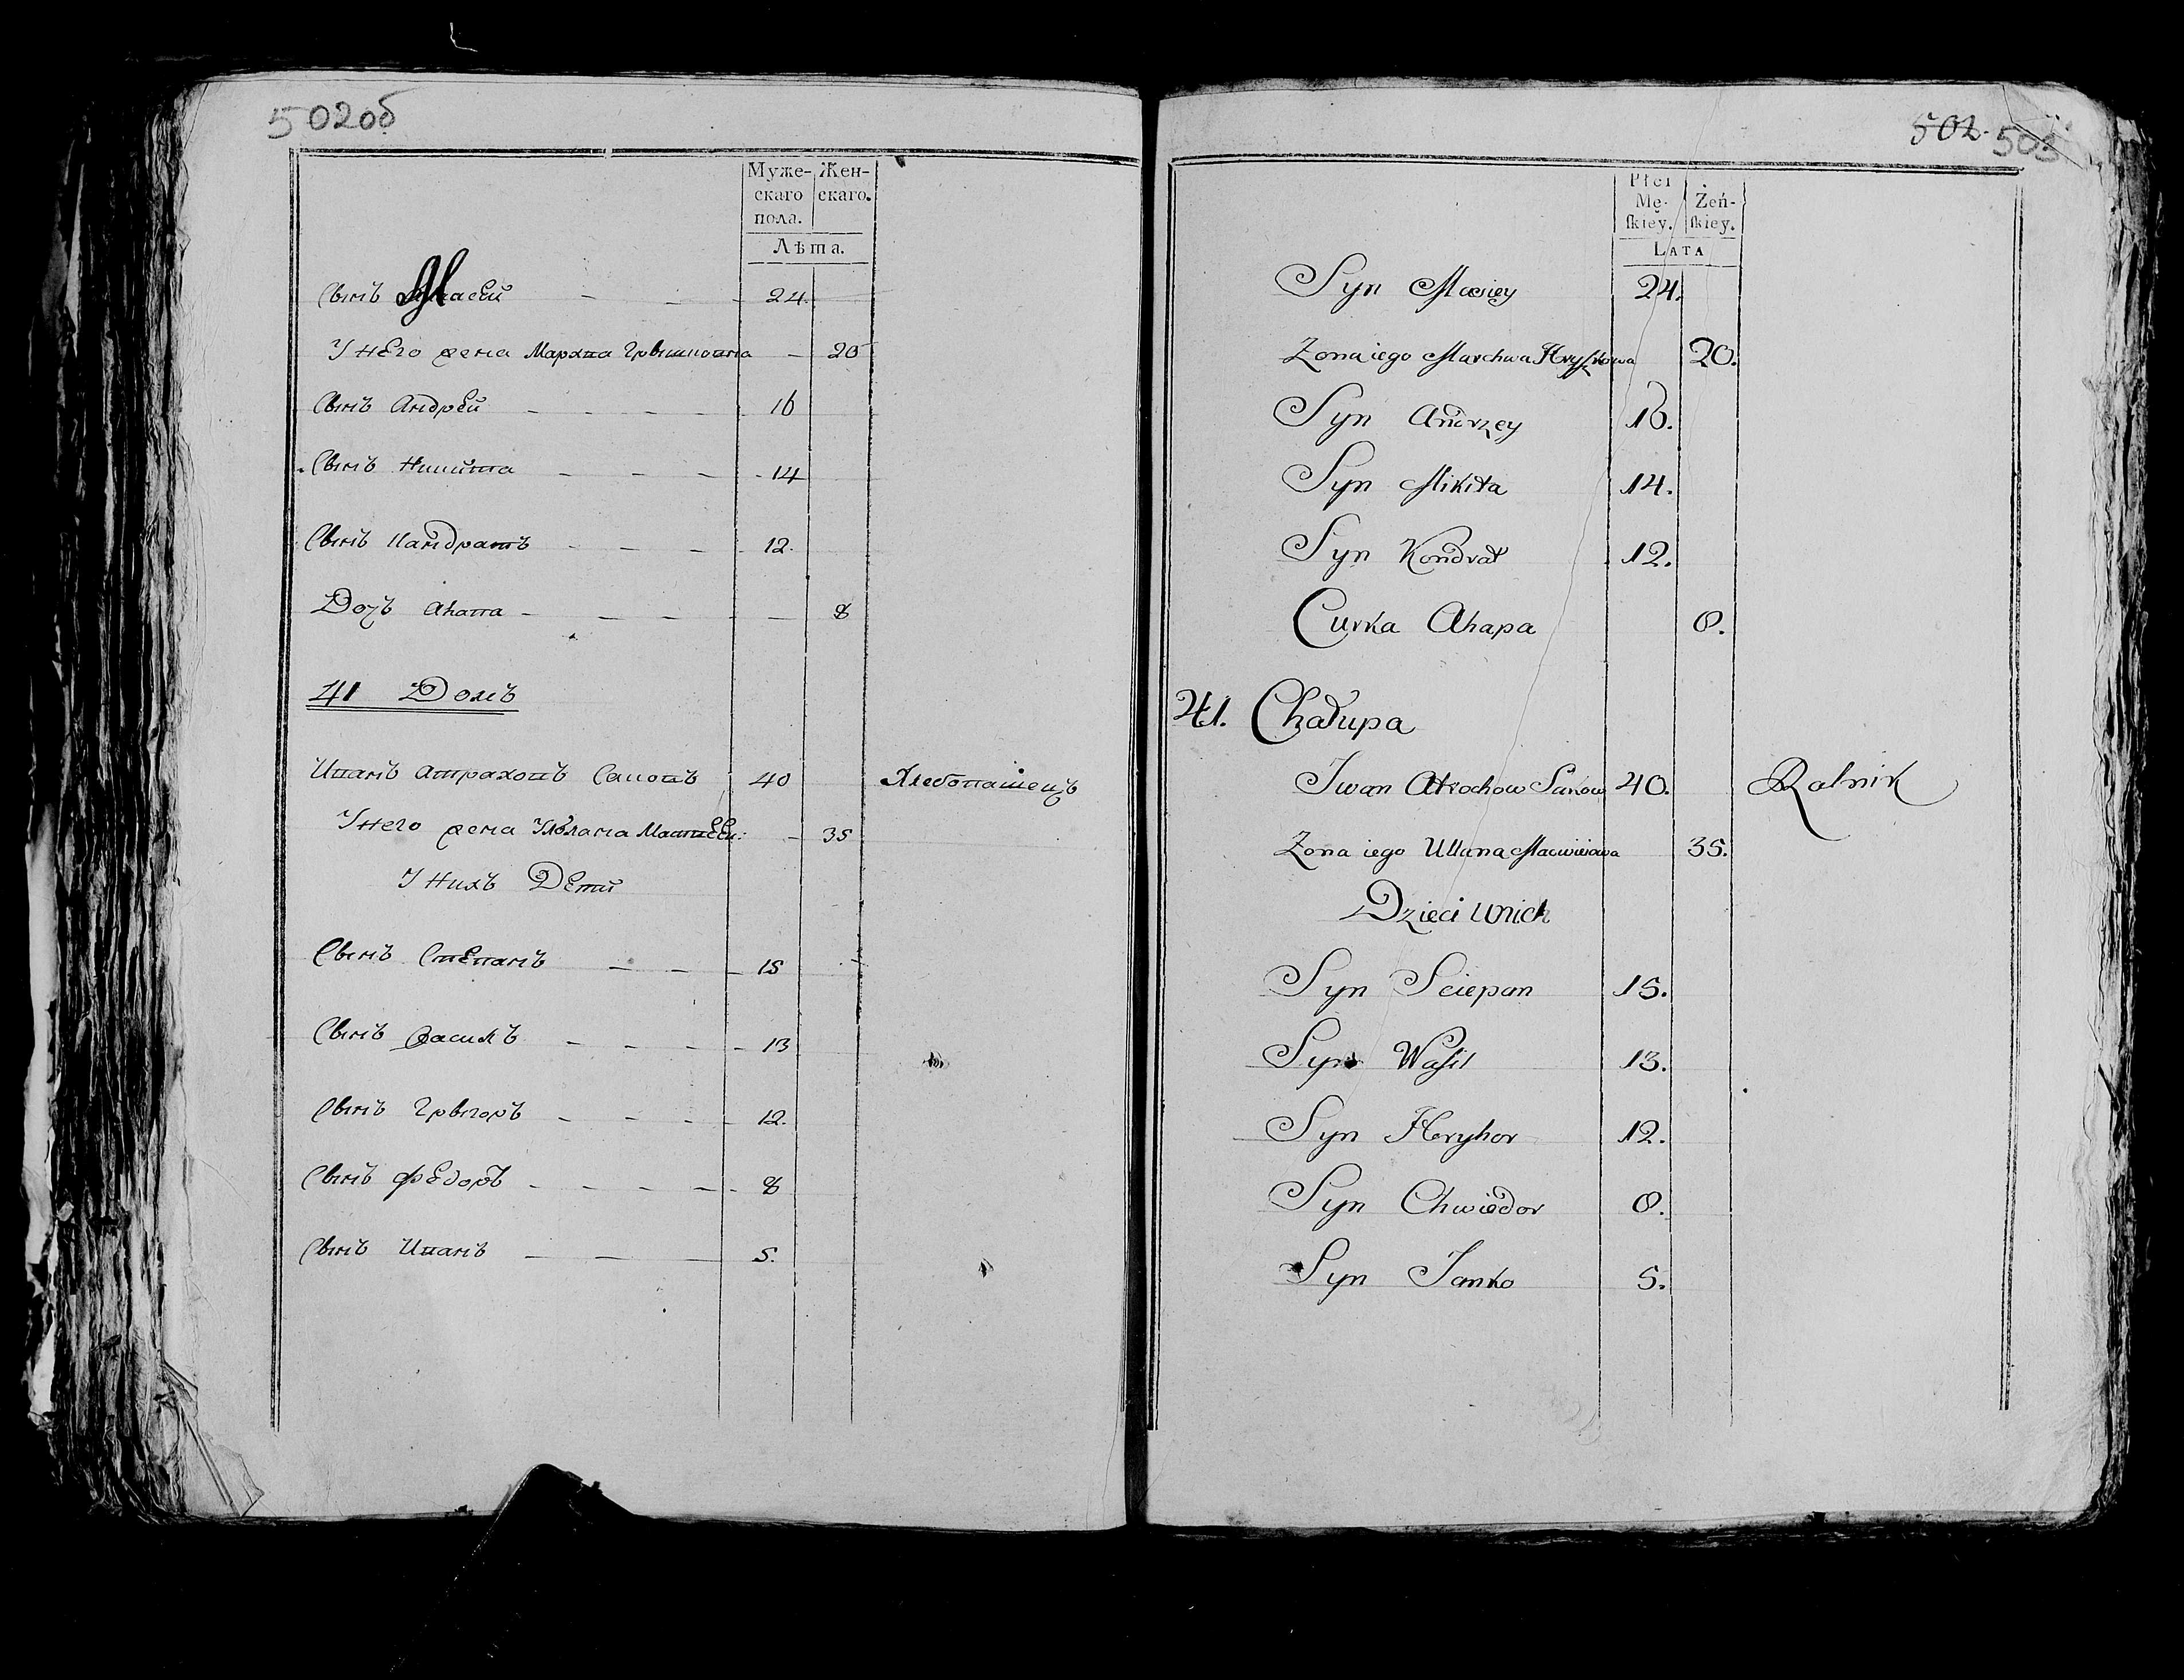 502об
Муже- Жен-
скаго скаго.
пола.
Лѣта.
Сынъ 24.
У него жена Мархва Грышкова 20
Сынъ Андрей 16
Сынъ Никита 14
Сынъ Кандратъ 12.
Дочъ Ahапа 8
41 Домъ
Иванъ Атраховъ Саковъ 40 Хлебопашецъ
У него жена Ульлана Мацвеев: 35
У нихъ Дети
Сынъ Степанъ 15
Сынъ Василь 13
Сынъ Грыгоръ 12.
Сынъ Федоръ 8
Сынъ Иванъ 5.
502. 503
Płci
Mę- Żeń-
ſkiey. ſkiey.
LATA
Syn Maciey 24.
Zona iego Marchwa Hryszkowa 20.
Syn Andrzey 16.
Syn Mikita 14.
Syn Kondrat 12.
Curka Ahapa 8.
41. Chałupa
Iwan Atrochow Sakow 40. Rolnik
Zona iego Ullana Maciwiejowa 35.
Dzieci unich
Syn Sciepan 15.
Syn Waſil 13.
Syn Hryhor 12.
Syn Chwiedor 8.
Syn Janko 5.